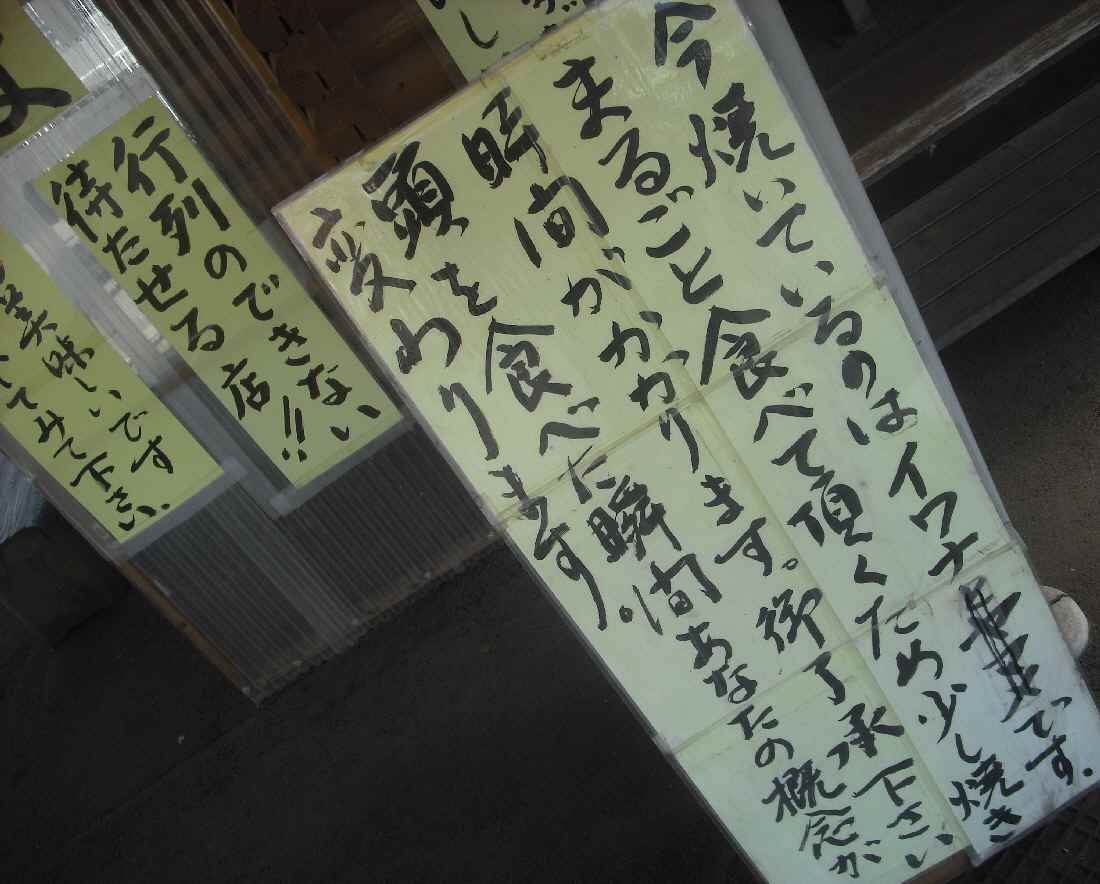 今焼いているのはイワナです.
まるごと食べて頂くため少し焼き
時間がかかります。御了承下さい
頭を食べた瞬間あなたの概念が
変わります。
行列のできない
待たせる店!!
美味しいです
てみて下さい